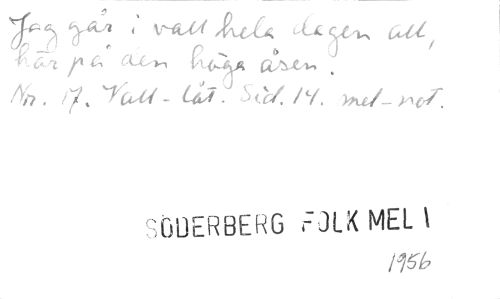 Jag går i vall hela dagen all,
här på den höga åsen.
Nr. 17. Vall-låt. Sid. 14. mel-not.
SÖDERBERG FOLK MEL I
1956